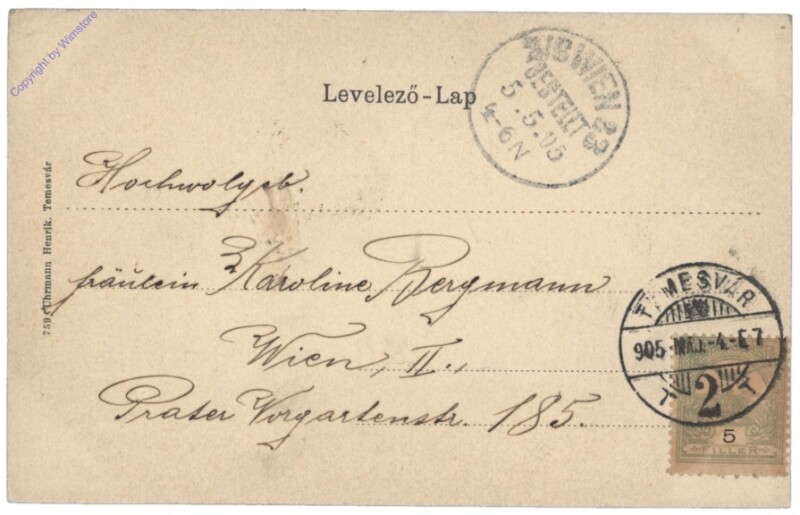 Copyright by Wimstore
Levelező-Lap
WIEN 2
BESTELLT
5.5.05
4-6N
759 Uhrmann Henrik. Temesvár
Hochwolgeb.
Fräulein Karoline Bergmann
Wien, II.,
Prater Vorgartenstr. 185.
TEMESVÁR
905 MÁJ.-4.-E7
T 2 T
5
FILLÉR